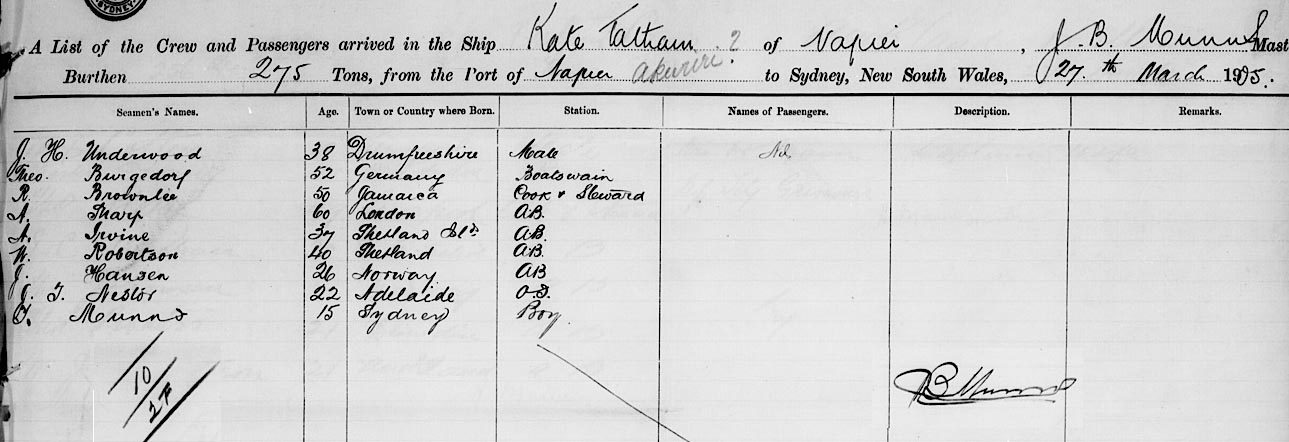 SYDNEY
A List of the Crew and Passengers arrived in the Ship Kate Tatham ? of Napier, J. B. Munns Mast
Burthen 275 Tons, from the Port of Napier to Sydney, New South Wales, 27th March 1905.
Seamen's Names. Age. Town or Country where Born. Station. Names of Passengers. Description. Remarks.
J. H. Underwood 38 Drumfreeshire Mate Nil
Theo. Burgedorf 52 Germany Boatswain
R. Brownlie 50 Jamaica Cook & Steward
A. Tharp 60 London A.B.
A. Irvine 37 Shetland Isl.ds A.B.
W. Robertson 40 Shetland A.B.
J. Hansen 26 Norway AB
J. T. Nestor 22 Adelaide O.S.
T. Munns 15 Sydney Boy
10
JB Munns